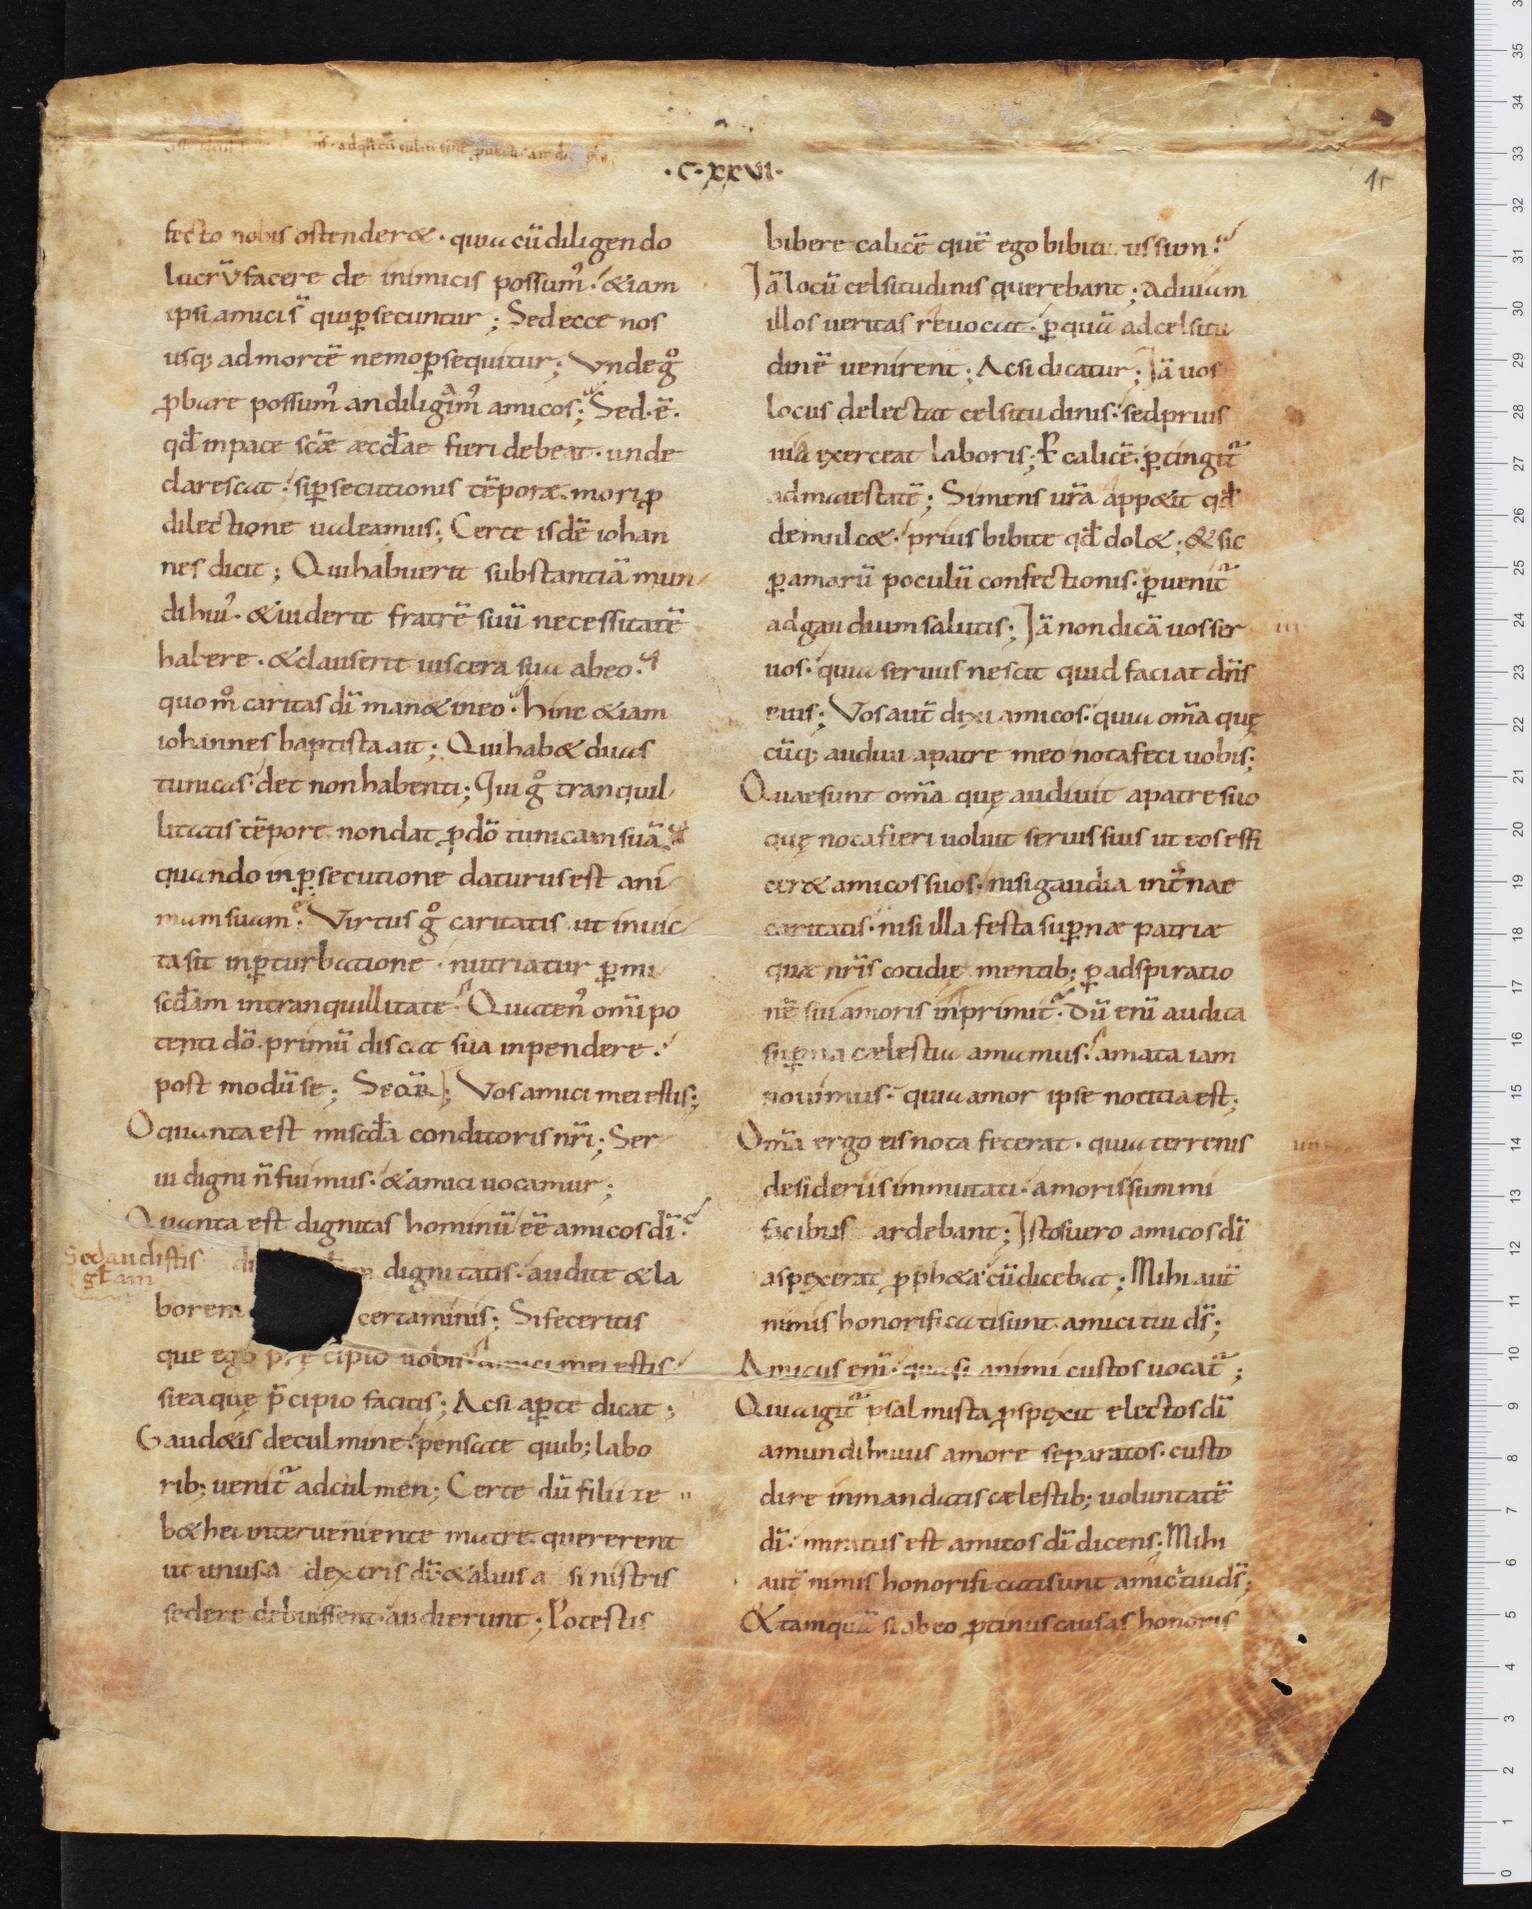 ·C·XXVI·
1r
fecto nobis ostender&· quia cū diligendo
lucrū facere de inimicis possum᷒· &iam
ipsi amici s̄ qui ꝑsecuntur; Sed ecce nos
usq; ad mortē nemo ꝑsequitur; Vnde gͦ
ꝓbare possum᷒ an diligam᷒ amicos; Sed· ē·
qđ in pace scǣ æccłae fieri debeat· unde
clarescat· si ꝑsecutionis tēporæ mori ꝓ
dilectione ualeamus; Certe isdē iohan
nes dicit; Qui habuerit substantiā mun
di hui᷒· & uiderit fratrē suū necessitatē
habere· & clauserit uiscera sua ab eo·
quom̊ caritas dī man& in eo· hinc &iam
iohannes baptista ait; Qui hab& duas
tunicas· det non habenti; Qui gͦ tranquil
litatis tēpore non dat ꝓ dō tunicam suā
quando in ꝑsecutione daturus est ani
mam suam· Virtus gͦ caritatis ut inuic
ta sit in ꝑturbatione· nutriatur ꝑ mi
scđam in tranquillitate· Quaten᷒ omīpo
tenti dō· primū discat sua inpendere·
post modū se; Seq̄R; Vos amici mei estis;
O quanta est miscđa conditoris nr̄i; Ser
ui digni n̄ fuimus· & amici uocamur;
Quanta est dignitas hominū eē amicos dī·
Sed audistis
głam dignitatis· audite & la
borem certaminis; Si feceritis
que ego p̄cipio uobis· amici mei estis
si ea quę p̄cipio facitis; Ac si aꝑte dicat;
Gaud&is de culmine· pensate quib; labo
rib; uenit᷑ ad culmen; Certe dū filii ze
b&hei interueniente matre quererent
ut unus a dextris dī· & alius a sinistris
sedere debuissent· audierunt; Potestis
bibere calicē quē ego bibiturus sum·
Iā locū celsitudinis querebant; ad uiam
illos ueritas reuocat· ꝑ quā ad celsitu
dinē uenirent; Ac si dicatur; Iā uos
locus delectat celsitudinis· sed prius
uia exerceat laboris; P calicē· ꝑtingit᷑
ad maiestatē; Si mens ur̄a app&it qđ
demulc&· prius bibite qđ dol&· & sic
ꝑ amarū poculū confectionis· ꝑuenit᷑
ad gaudium salutis; Iā non dicā uos ser
uos· quia seruus nescit quid faciat dn̄s
eius; Vos aut̄ dixi amicos· quia om̄a quę
cūq; audiui a patre meo nota feci uobis;
Quae sunt om̄a quę audiuit a patre suo
quę nota fieri uoluit seruis suis ut eos effi
cer& amicos suos· nisi gaudia int̄nae
caritatis· nisi illa festa suꝑnæ patriæ
quæ nr̄is cotidię mentib; ꝑ adspiratio
nē sui amoris inprimit᷑· Dū enī audita
suꝑna cælestia amamus· amata iam
nouimus· quia amor ipse notitia est;
Om̄a ergo eis nota fecerat· quia terrenis
desideriis immutati· amoris summi
facibus ardebant; Istos uero amicos dī
aspexerat ꝓph&a cū dicebat; Mihi aut̄
nimis honorificati sunt amici tui ds̄;
Amicus enī· quasi animi custos uocat᷑;
Quia igit᷑ psalmista ꝓspexit electos dī
a mundi huius amore separatos· custo
dire in mandatis cælestib; uoluntatē
dī· miratus est amicos dī dicens; Mihi
aut̄ nimis honorificati sunt amici tui ds̄;
& tamquā si ab eo ꝓtinus causas honoris